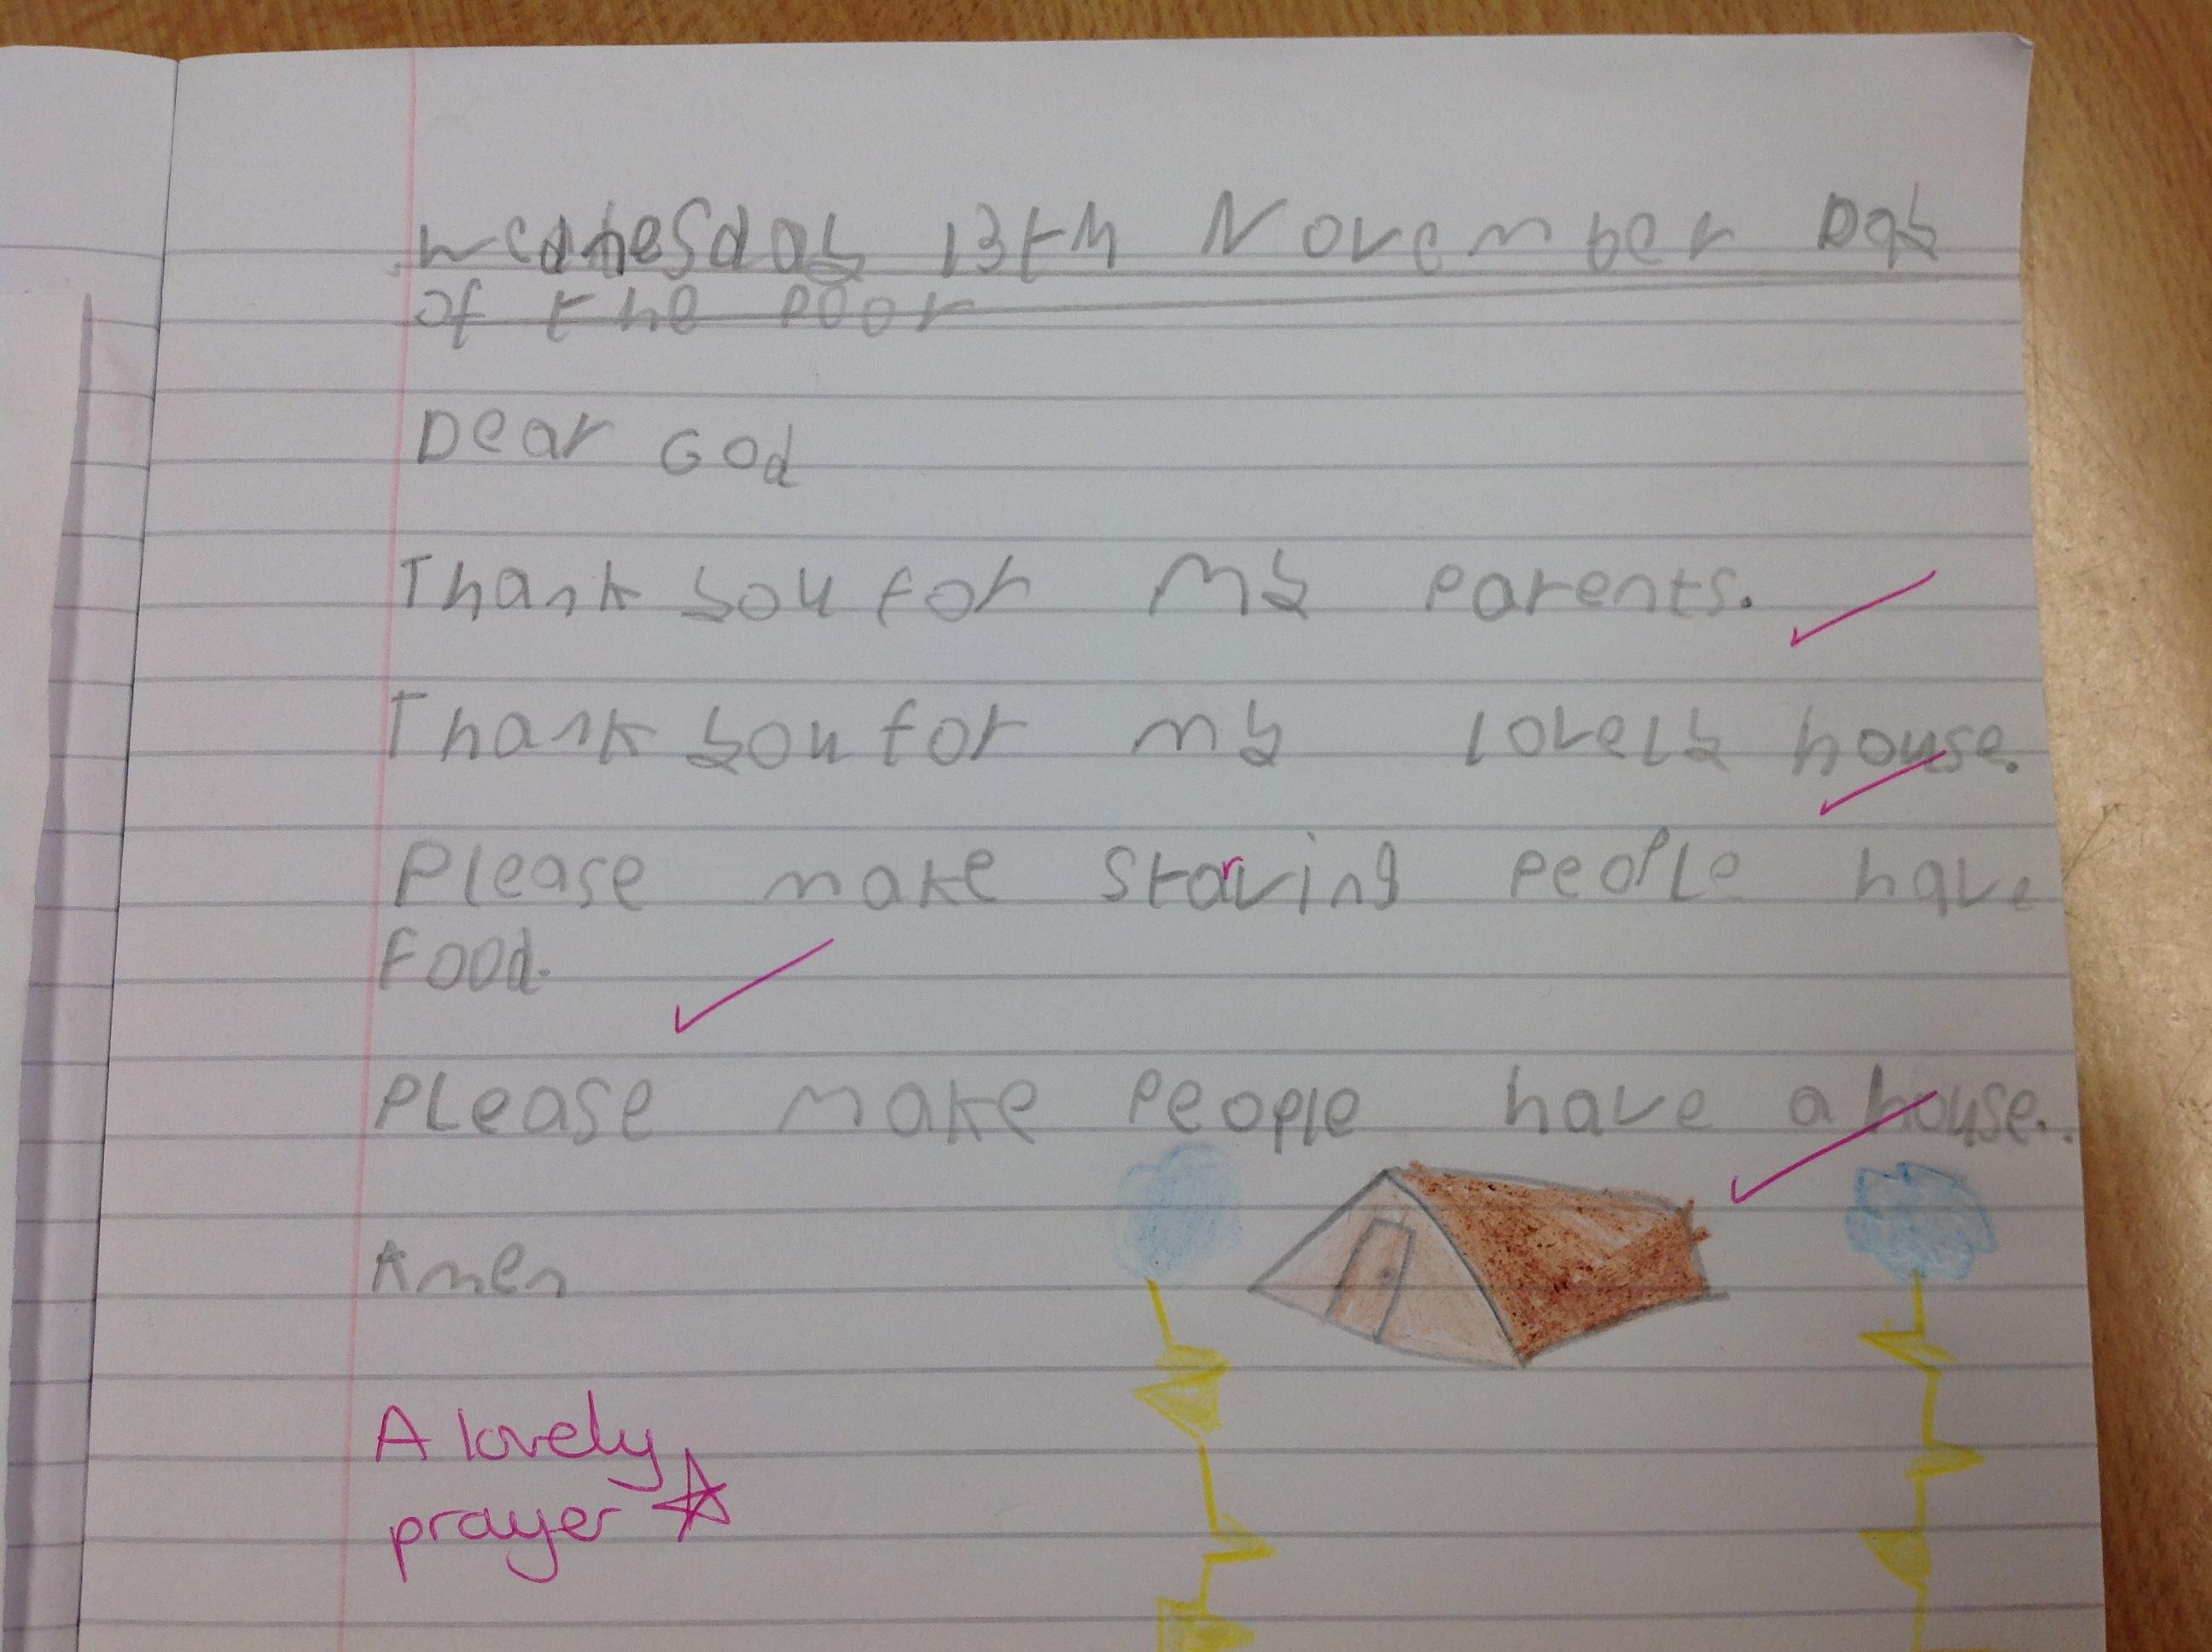 Wednesday 13th November Day
of the poor
Dear God
Thank you for my parents.
Thank you for my lovely house.
Please make starving people have
food.
Please make people have a house..
Amen
A lovely
prayer